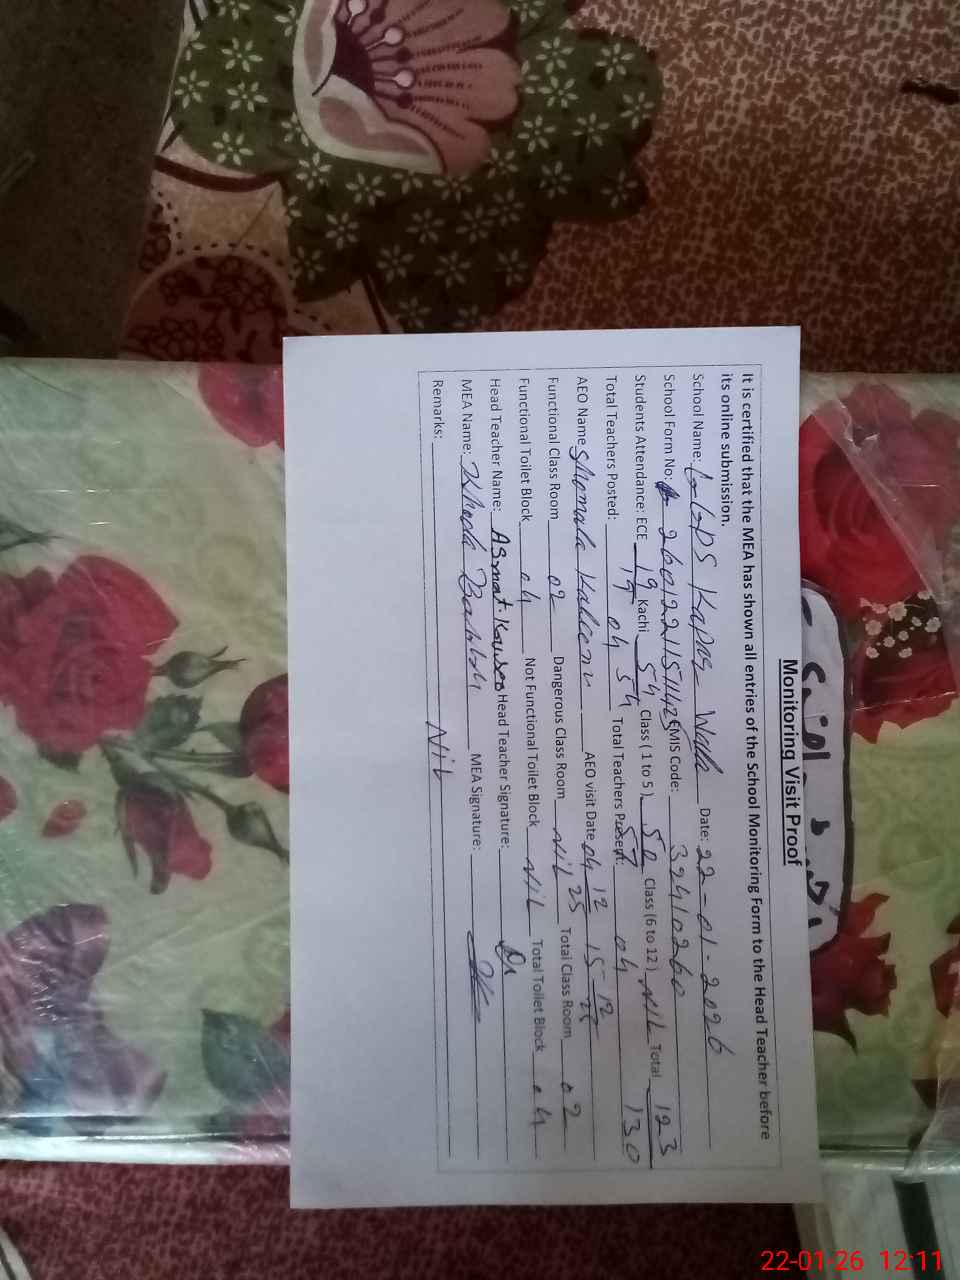 Monitoring Visit Proof
It is certified that the MEA has shown all entries of the School Monitoring Form to the Head Teacher before
its online submission.
School Name: GGPS Kapas Wala Date: 22-01-2026
School Form No: 260122115114 EMIS Code: 39410260
Students Attendance: ECE 19/19 Kachi 54/54 Class (1 to 5) 50/57 Class (6 to 12) NIL Total 123/130
Total Teachers Posted: 04 Total Teachers Present: 04
AEO Name Shomala Kaleem AEO visit Date 04 12 25 15-12
Functional Class Room 02 Dangerous Class Room NIL Total Class Room 02
Functional Toilet Block 04 Not Functional Toilet Block NIL Total Toilet Block 04
Head Teacher Name: Asmat Kausar Head Teacher Signature:
MEA Name: Khuda Bakhsh MEA Signature:
Remarks: Nil
22-01-26 12:11